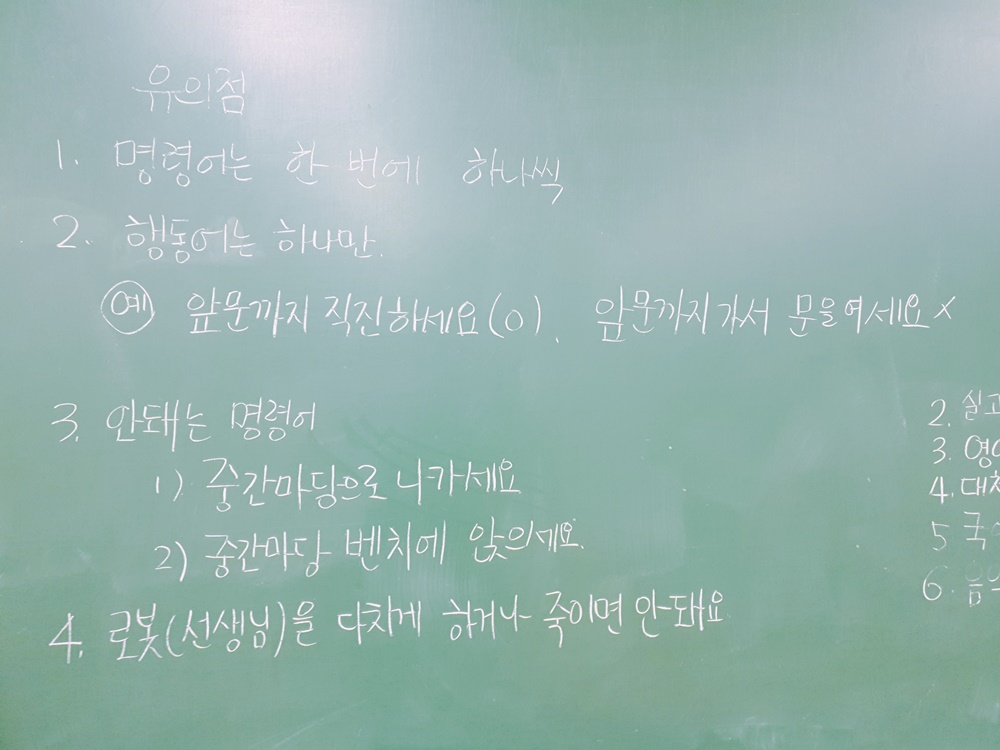 유의점
1. 명령어는 한 번에 하나씩
2. 행동어는 하나만.
예 앞문까지 직진하세요(O). 앞문까지가서 문을여세요 X
3. 안돼는 명령어
1) 중간마당으로 나가세요
2) 중간마당 벤치에 앉으세요.
4. 로봇(선생님)을 다치게 하거나 죽이면 안돼요
2. 실고
3. 영어
4. 대
5 국
6. 음